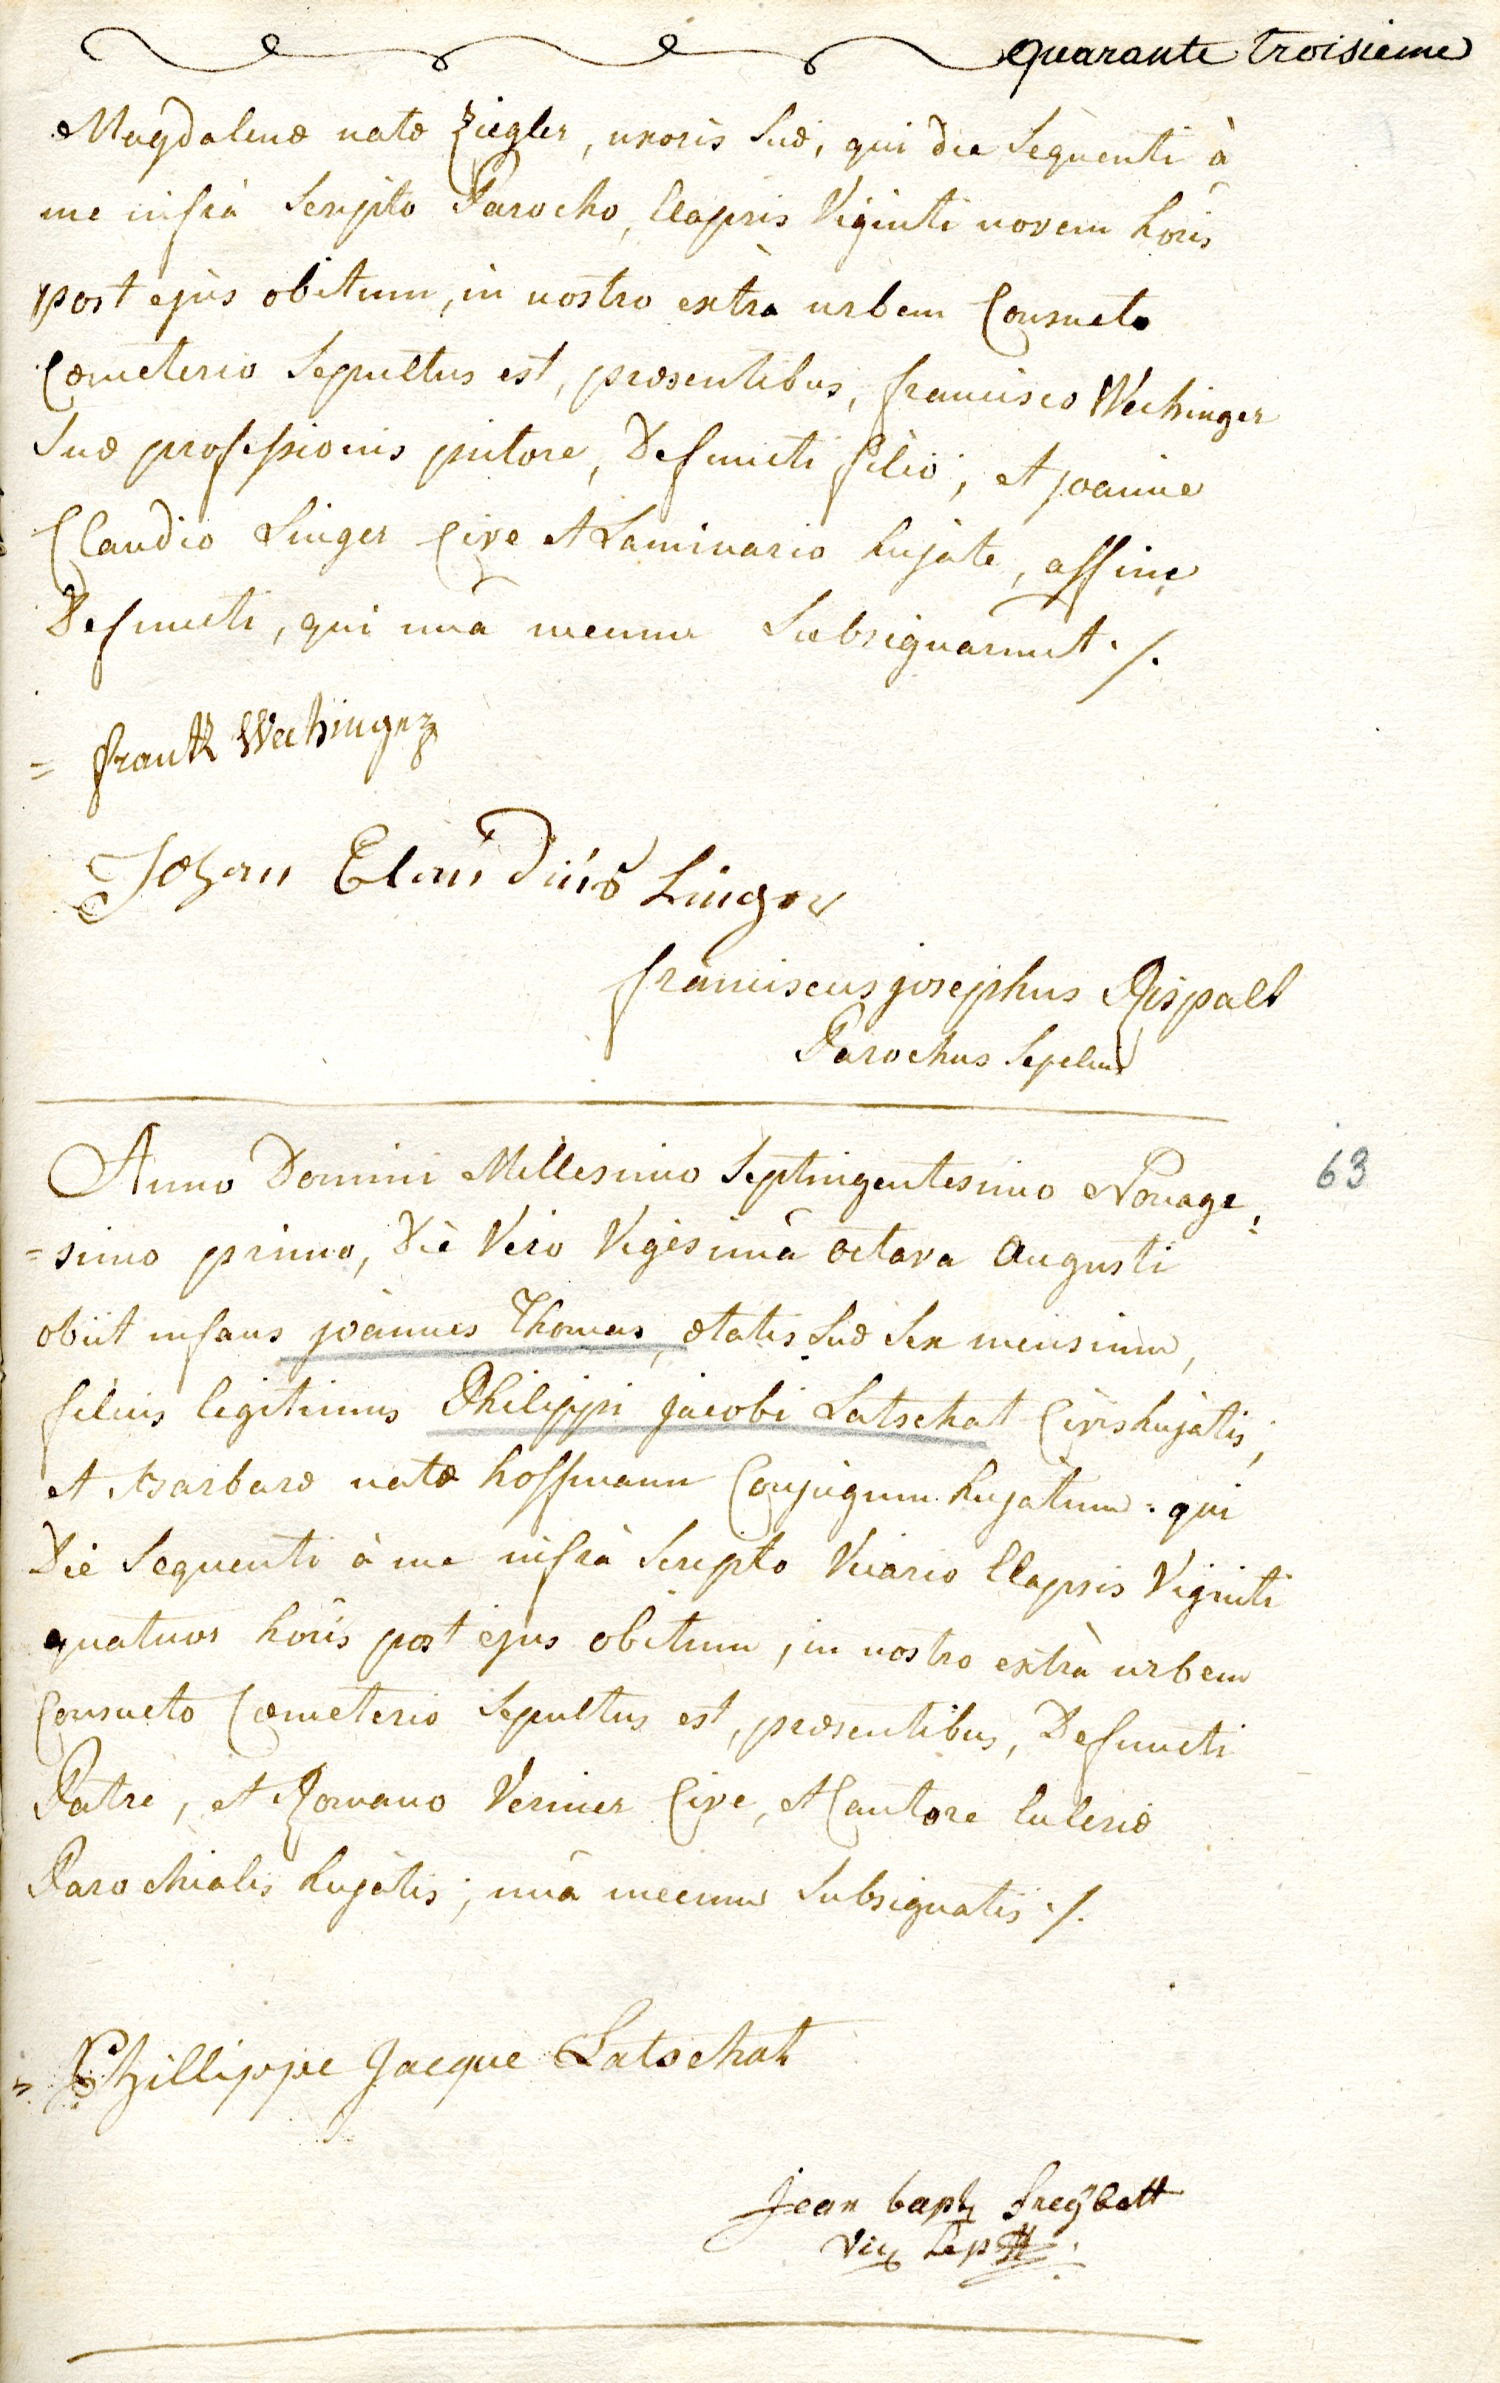 quarante troisieme
Magdalenæ natæ Ziegler, uxoris suæ, qui die sequenti à
me infrà scripto Parocho, Elapsis Viginti novem horis
post ejus obitum, in nostro extra urbem Consueto
Cœmeterio sepultus est, præsentibus, francisco Wechinger
suæ professionis pictore, Defuncti filio, et joanne
Claudio Linger Cive et Laminario hujate, affine
Defuncti, qui unà mecum Subsignarunt ./.
= frantz Wechinger
Johan Claudius Linger
franciscus josephus Rispalt
Parochus sepeliens
Anno Domini Millesimo Septingentesimo Nonage= 63
=simo primo, Die Vero Vigesimâ octava Augusti
obiit infans joannes Thomas, ætatis suæ sex mensium,
filius legitimus Philippi jacobi Latschat Civis hujatis,
et Barbaræ natæ hoffmann Conjugum hujatum: qui
Die Sequenti à me infrà Scripto Vicario Elapsis Viginti
quatuor horis post ejus obitum, in nostro extrà urbem
Consueto Cœmeterio sepultus est, præsentibus, Defuncti
Patre, et Romano Vernier Cive, et Cantore Eclesiæ
Parochialis hujatis, unà mecum Subsignatis ./.
= Phillippe Jacque Latschat
Jean bapt freÿbott
Vic